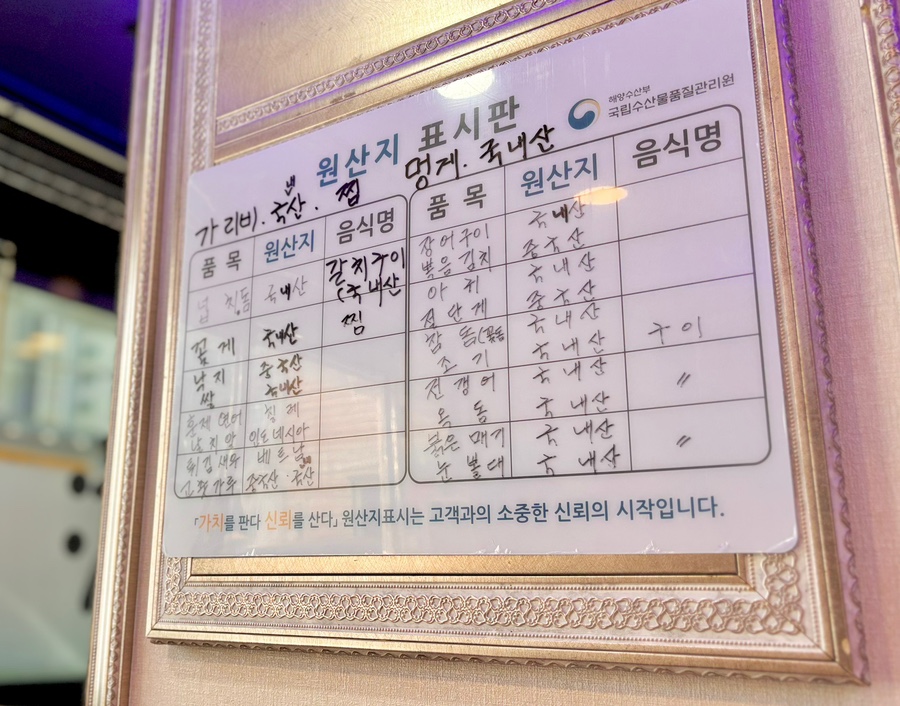 해양수산부
국립수산물품질관리원
원산지 표시판
멍게. 국내산
가리비. 국내산. 찜
품 목 원산지 음식명
국내산 갈치구이
(국내산
꽃 게 국내산 찜
낙 지 중국산
쌀 국내산
훈제 연어 칠레
낙지알 인도네시아
튀김새우 베트남
고춧가루 중국산·국산
품 목 원산지 음식명
장어구이 국내산
볶음김치 중국산
아 귀 국내산
점단게 중국산
참 돔 국내산 구이
조 기 국내산
전갱어 국내산 〃
옥 돔 국내산
붉은메기 국내산 〃
눈볼대 국내산
「가치를 판다 신뢰를 산다」 원산지표시는 고객과의 소중한 신뢰의 시작입니다.